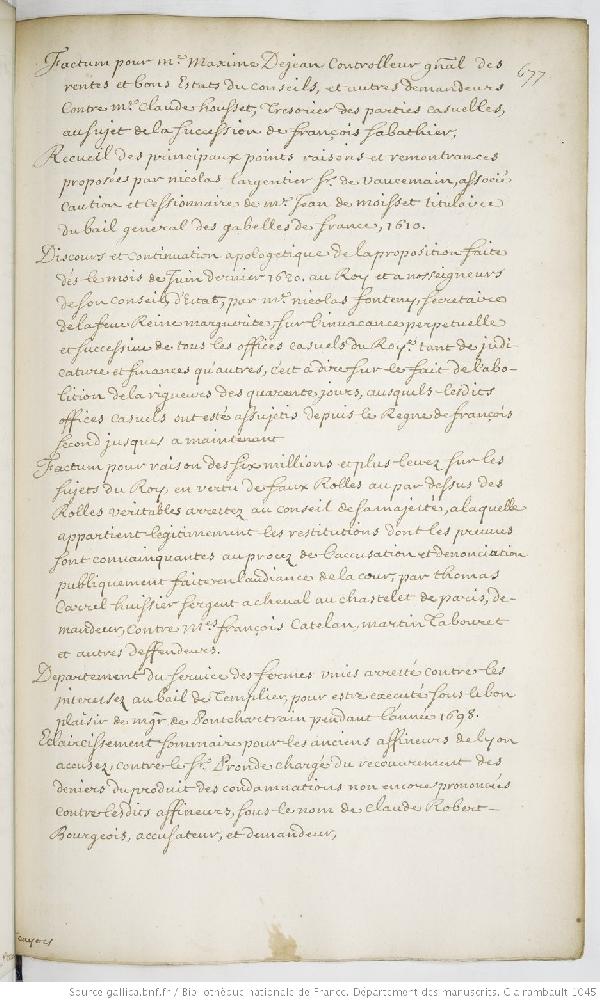 677
Factum pour mr. Maxime Dejean Controlleur gnãl des
rentes et bons Estats du Conseils, et autres demandeurs
Contre mr. Claude housset, Tresorier des parties Casuelles,
au sujet de la succession de françois Sabathier.
Recueil des principaux points raisons et remontrances
proposées par nicolas Largentier Sr. de Vaucemain, associé
Caution et Cessionnaire de mr. Jean de moisset titulaire
du bail general des gabelles de france, 1610.
Discours et Continuation apologetique de la proposition faite
dés le mois de Juin dernier 1620. au Roy et a nosseigneurs
de son Conseil d'Estat, par mr. nicolas fonteny, secretaire
de la feue Reine marguerite, sur l'invacance perpetuelle
et successive de tous les offices Casuels du Roye. tant de judi-
cature et finances qu'autres, c'est a dire sur le fait de l'abo-
lition de la rigueurs des quarente jours, ausquils lesdits
offices Casuels ont esté assujetis depuis le Regne de françois
second jusques a maintenant
Factum pour raison des six millions et plus levez sur les
sujets du Roy en vertu de faux Rolles au par dessus des
Rolles veritables arrestez au conseil de sa majesté, a laquelle
appartient legitimement les restitutions dont les preuves
sont convainquantes au procez de l'accusation et denonciation
publiquement faite en l'audiance de la cour, par Thomas
Carrel huissier sergent a cheval au chastelet de paris, de-
mandeur, Contre Mrs. françois Catelan, martin Tabouret
et autres deffendeurs.
Departement du service des fermes unies arresté contre les
interessez au bail de Templier, pour estre executé sous le bon
plaisir de mgr de Pontchartrain pendant l'année 1698.
Eclaircissement sommaire pour les anciens affineurs de lyon
accusez, contre le Sr. Pronde chargé du recouvrement des
deniers du produit des condamnations non encore prononcées
contre lesdits affineurs, sous le nom de Claude Robert
Bourgeois, accusateur, et demandeur,
Source gallica.bnf.fr / Bibliothèque nationale de France. Département des manuscrits. Clairambault 1045